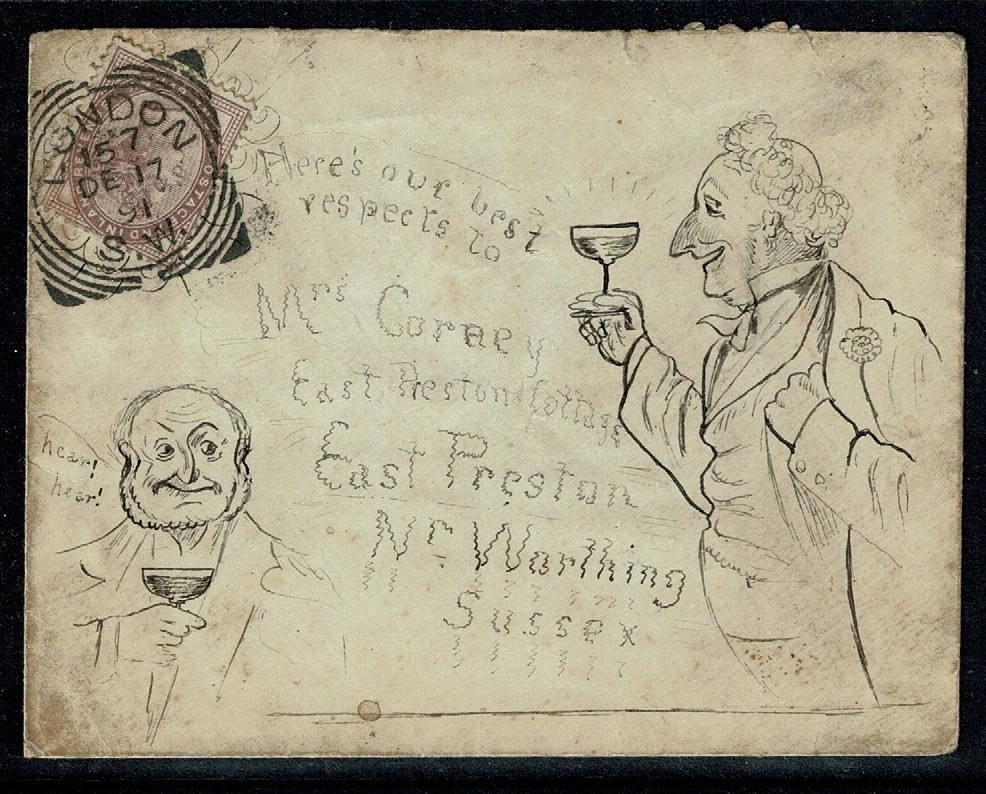 LONDON
15·7
DE 17
91
S.W.
Here's our best
respects to
Mrs Corney
East Preston Cottage
East Preston
Nr Worthing
Sussex
hear!
hear!